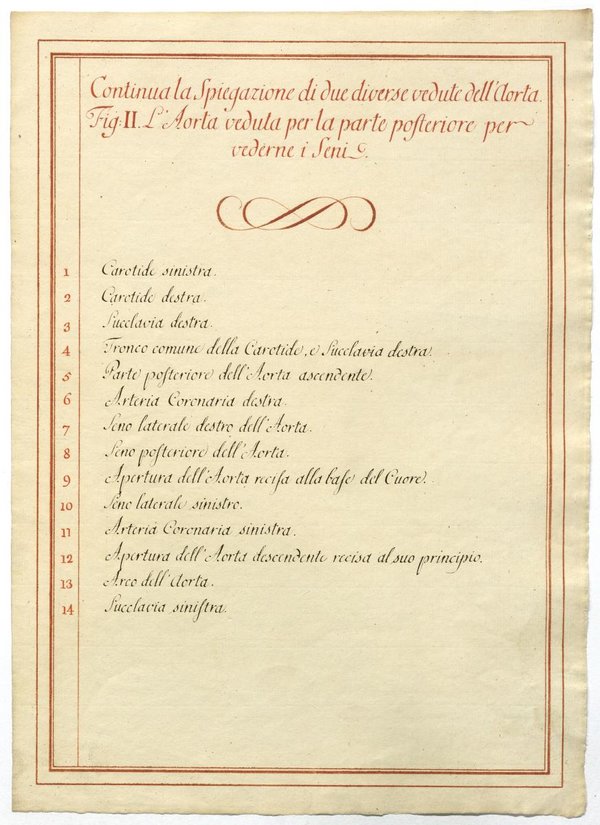 Continua la Spiegazione di due diverse vedute dell'Aorta.
Fig. II. L'Aorta veduta per la parte poſteriore per
vederne i Seni.
1 Carotide sinistra.
2 Carotide destra.
3 Succlavia destra.
4 Tronco comune della Carotide, e Succlavia destra.
5 Parte posteriore dell'Aorta ascendente.
6 Arteria Coronaria destra.
7 Seno laterale destro dell'Aorta.
8 Seno poſteriore dell'Aorta.
9 Apertura dell'Aorta reciſa alla baſe del Cuore.
10 Seno laterale sinistro.
11 Arteria Coronaria sinistra.
12 Apertura dell'Aorta descendente recisa al suo principio.
13 Arco dell'Aorta.
14 Succlavia siniſtra.